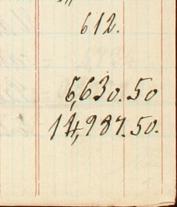 612.
6,630.50
14,987.50.